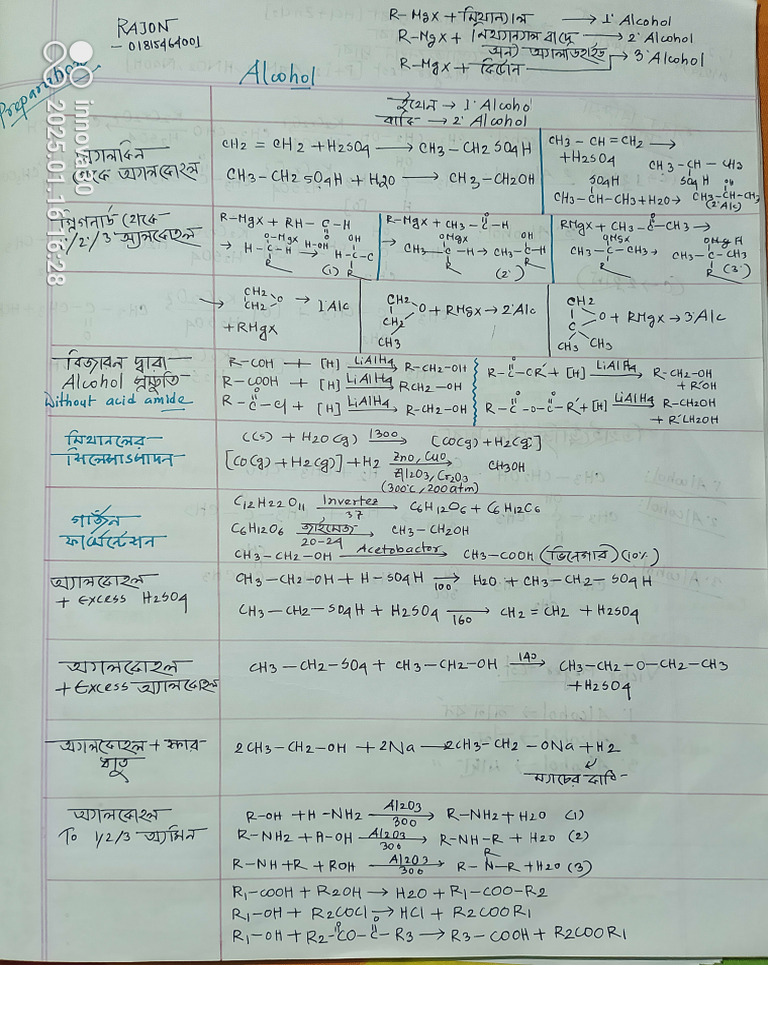 RAJON
- 01815464001
R-MgX + মিথান্যাল → 1° Alcohol
R-MgX + মিথান্যাল বাদে অন্য অ্যালডিহাইড → 2° Alcohol
R-MgX + কিটোন → 3° Alcohol
Preparation
Alcohol
ইথেন → 1° Alcoho
বাকি → 2° Alcohol
অ্যালকিন থেকে অ্যালকোহল
CH2 = CH2 + H2SO4 → CH3 - CH2 SO4H
CH3 - CH2 SO4H + H2O → CH3 - CH2OH
CH3 - CH = CH2 →
+ H2SO4
CH3 - CH - CH3
SO4H
SO4H
CH3 - CH - CH3 + H2O → CH3-CH-CH3
OH
(2° Alc)
গ্রিগনার্ড থেকে
1°/2°/3° অ্যালকোহল
R-MgX + RH - C - H
O
→ H - C - H → H - C - C
O-MgX
H-OH
OH
R
R
(1)
R-MgX + CH3 - C - H
O
→ CH3 - C - H → CH3 - C - H
OMgX
OH
R
R
(2°)
RMgX + CH3 - C - CH3 →
O
CH3 - C - CH3 → C - CH3
R
R
(3°)
→ CH2 CH2 O → 1° Alc
+ RMgX
CH2 CH2 O + RMgX → 2° Alc
CH3
CH2 C O + RMgX → 3° Alc
CH3 CH3
বিজারন দ্বারা
Alcohol প্রস্তুতি
Without acid amide
R - COH + [H] LiAlH4 → R-CH2-OH
R - COOH + [H] LiAlH4 → RCH2-OH
R - C - Cl + [H] LiAlH4 → R-CH2-OH
O
R - C - OR' + [H] LiAlH4 → R-CH2-OH
O
+ R'OH
R - C - O - C - R' + [H] LiAlH4 → R-CH2OH
O
+ R'CH2OH
মিথানলের
শিল্পোৎপাদন
C(s) + H2O (g) 1300 → [CO(g) + H2(g)]
[CO(g) + H2(g)] + H2 ZnO, CuO → CH3OH
Al2O3, Cr2O3
(300°C, 200atm)
গাঁজন
ফার্মেন্টেশন
C12H22O11 Invertez → C6H12O6 + C6H12C6
37
C6H12O6 জাইমেজ → CH3 - CH2OH
20-24
CH3 - CH2 - OH Acetobactor → CH3 - COOH (ভিনেগার) (10%)
অ্যালকোহল
+ Excess H2SO4
CH3 - CH2 - OH + H - SO4H 100 → H2O + CH3 - CH2 - SO4H
CH3 - CH2 - SO4H + H2SO4 160 → CH2 = CH2 + H2SO4
অ্যালকোহল
+ Excess অ্যালকোহল
CH3 - CH2 - SO4 + CH3 - CH2 - OH 140 → CH3 - CH2 - O - CH2 - CH3
+ H2SO4
অ্যালকোহল + ক্ষার
ধাতু
2CH3 - CH2 - OH + 2Na → 2CH3 - CH2 - ONa + H2
অ্যালকোহল
To 1/2/3 অ্যামিন
R-OH + H - NH2 Al2O3 → R - NH2 + H2O (1)
300
R - NH2 + R-OH Al2O3 → R - NH - R + H2O (2)
300
R
R - NH + R + ROH Al2O3 → R - N - R + H2O (3)
300
R1 - COOH + R2OH → H2O + R1 - COO - R2
R1 - OH + R2COCl → HCl + R2COOR1
R1 - OH + R2 - CO - C - R3 → R3 - COOH + R2COOR1
innov8 20
2025.01.16 16:28